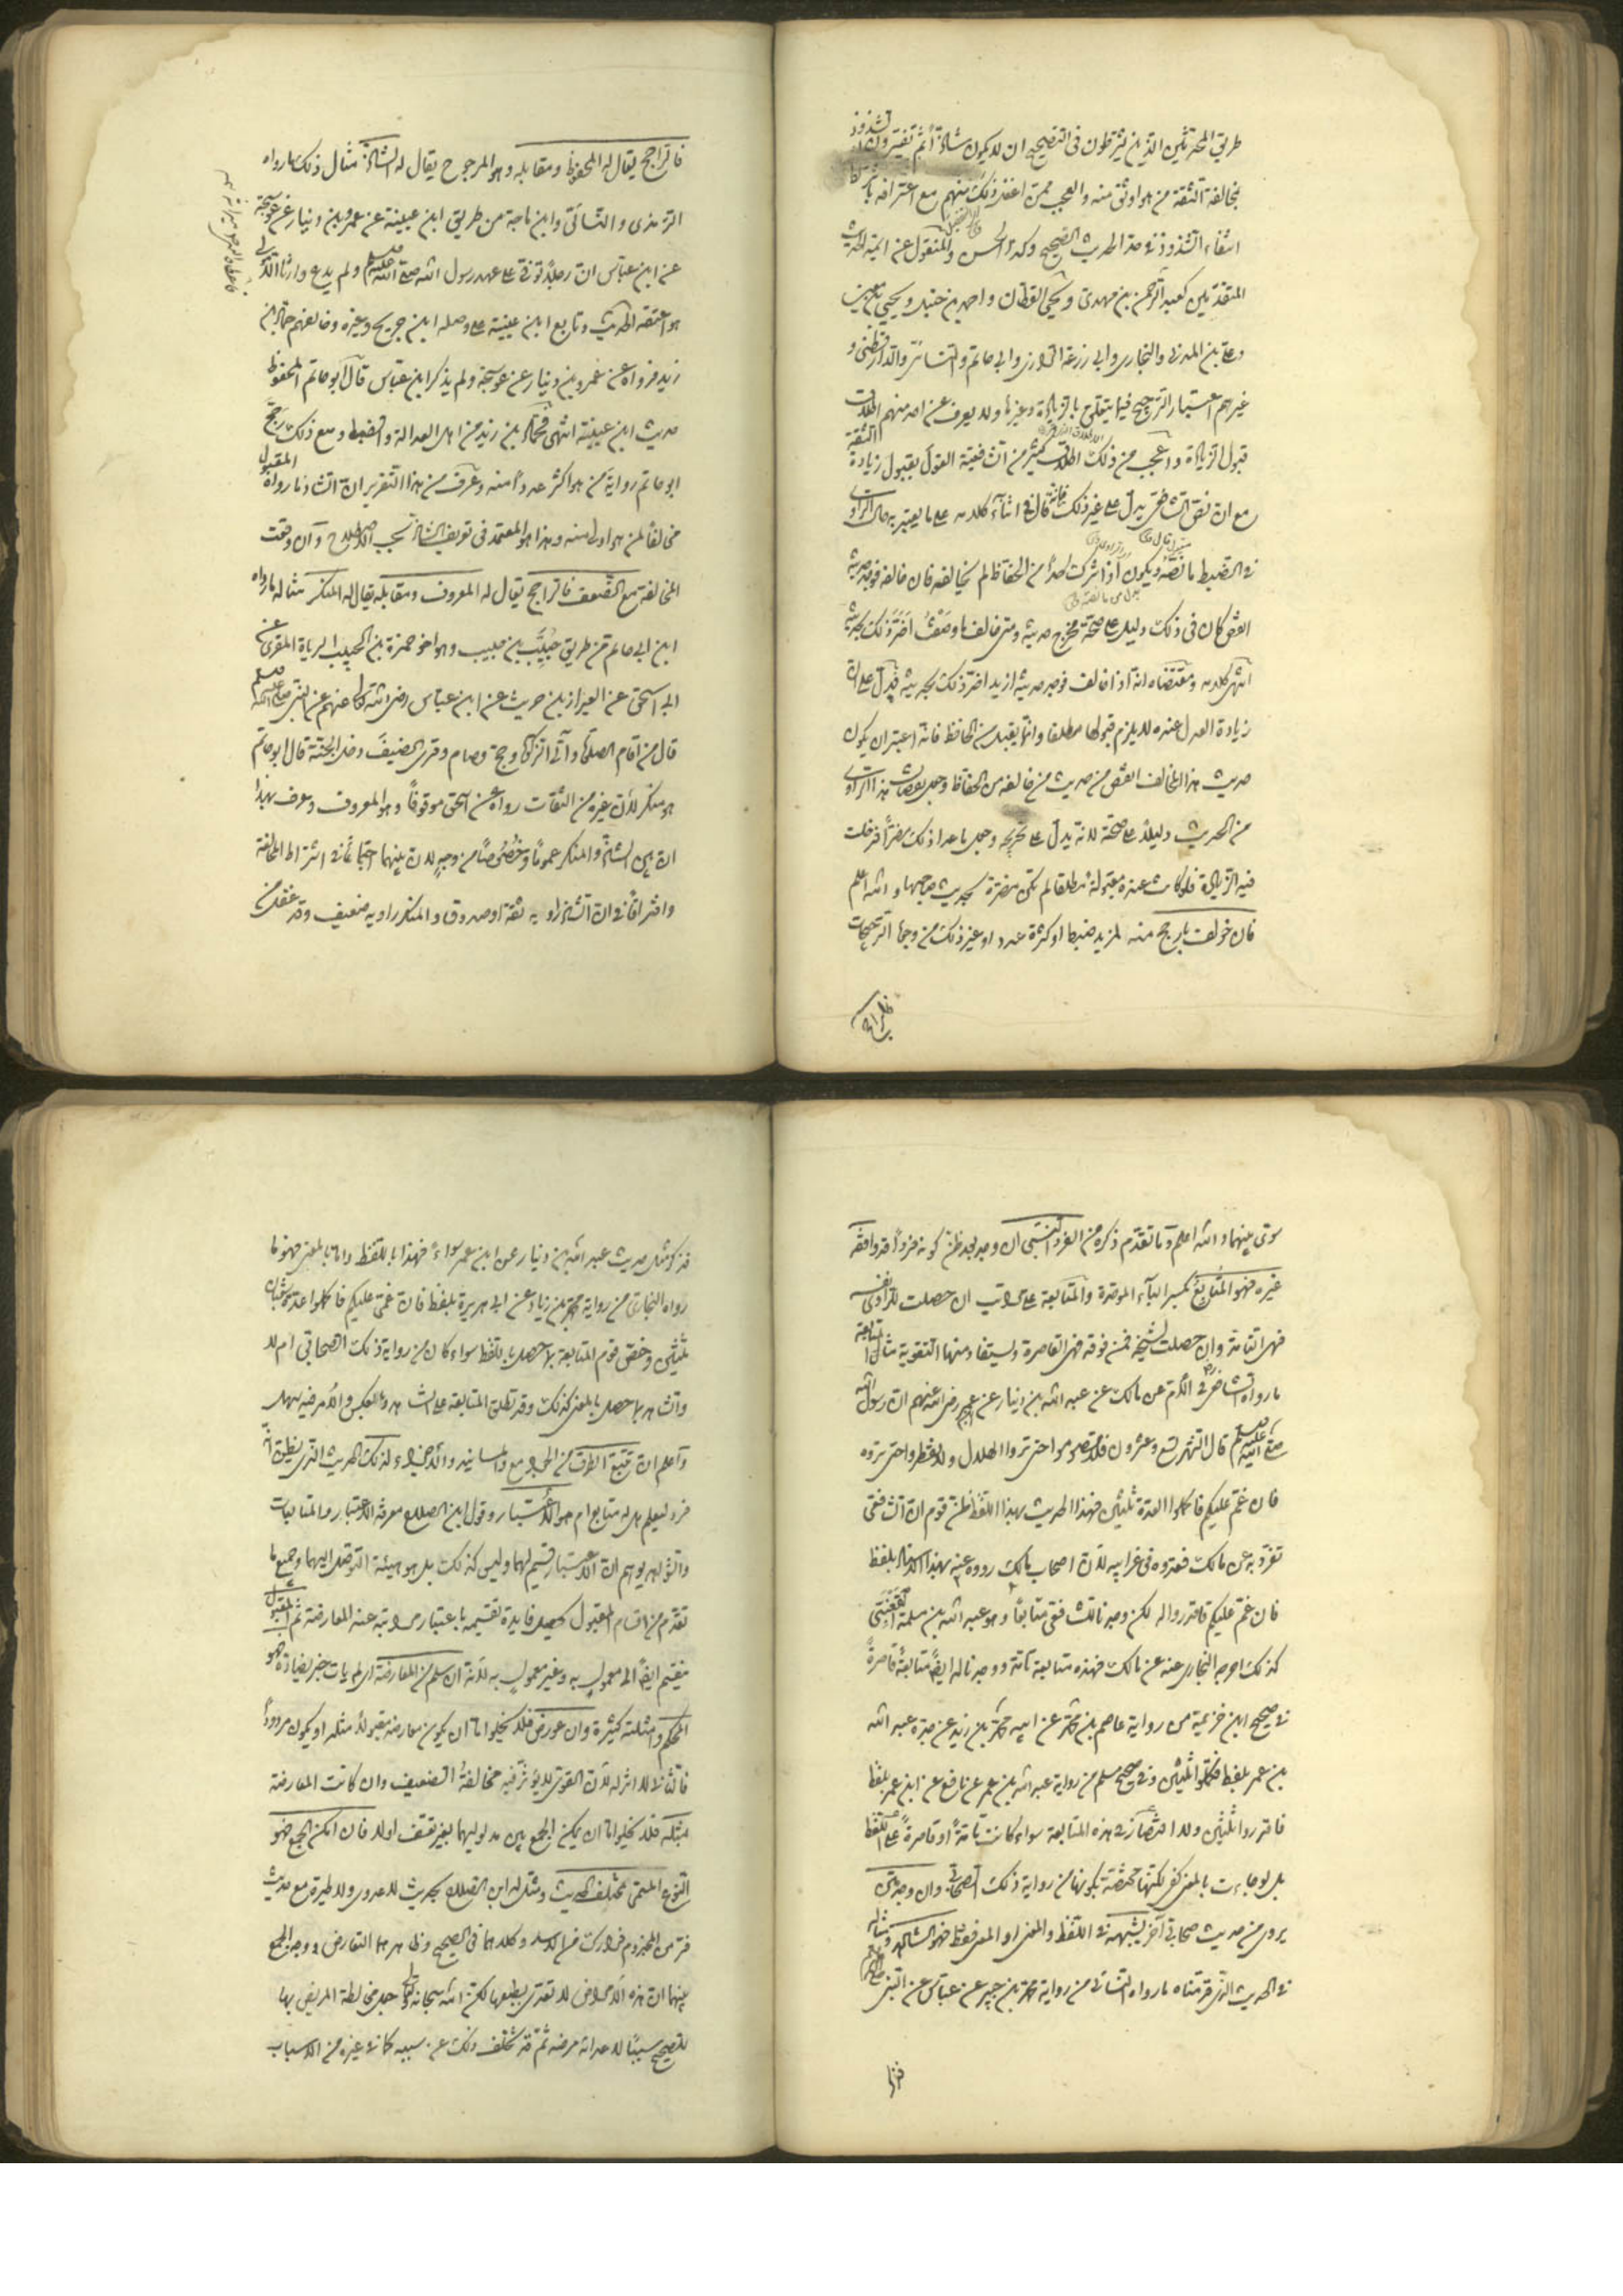 طريق المحدثين الذين يشترطون في الصحيح ان لا يكون شاذا ثم يفسرون الشذوذ
بمخالفة الثقة من هو اوثق منه والعجب ممن اغفل ذلك منهم مع اعترافه باشتراط
انتفاء الشذوذ في حد الحديث الصحيح وكذا الحسن والمنقول عن ائمة الحديث
المتقدمين كعبد الرحمن بن مهدي ويحيى القطان واحمد بن حنبل ويحيى بن معين
وعلي بن المديني والبخاري وابي زرعة الرازي وابي حاتم والنسائي والدارقطني و
غيرهم اعتبار الترجيح فيما يتعلق بالزيادة وغيرها ولا يعرف عن احد منهم اطلاق
قبول الزيادة واعجب من ذلك اطلاق كثير من الشافعية القول بقبول زيادة الثقة
مع ان نص الشافعي يدل على غير ذلك فانه قال في اثناء كلامه على ما يعتبر به حال الراوي
في الضبط ما نصه ويكون اذا شرك احدا من الحفاظ لم يخالفه فان خالفه فوجد حديثه
انقص كان في ذلك دليل على صحة مخرج حديثه ومتى خالف ما وصفت اضر ذلك بحديثه
انتهى كلامه ومقتضاه انه اذا خالف فوجد حديثه ازيد اضر ذلك بحديثه فدل على ان
زيادة العدل عنده لا يلزم قبولها مطلقا وانما يقبل من الحافظ فانه اعتبر ان يكون
حديث هذا المخالف انقص من حديث من خالفه من الحفاظ وجعل نقصان هذا الراوي
من الحديث دليلا على صحته لانه يدل على تحريه وجعل ما عدا ذلك مضرا فدخلت
فيه الزيادة فلو كانت عنده مقبولة مطلقا لم تكن مضرة بحديث صاحبها والله اعلم
فان خولف بارجح منه لمزيد ضبط او كثرة عدد او غير ذلك من وجوه الترجيحات
فالراجح
فالراجح يقال له المحفوظ ومقابله وهو المرجوح يقال له الشاذ مثال ذلك ما رواه
الترمذي والنسائي وابن ماجة من طريق ابن عيينة عن عمرو بن دينار عن عوسجة
عن ابن عباس ان رجلا توفي على عهد رسول الله صلى الله عليه وسلم ولم يدع وارثا الا مولى
هو اعتقه الحديث وتابع ابن عيينة على وصله ابن جريج وغيره وخالفهم حماد بن
زيد فرواه عن عمرو بن دينار عن عوسجة ولم يذكر ابن عباس قال ابو حاتم المحفوظ
حديث ابن عيينة انتهى فحماد بن زيد من اهل العدالة والضبط ومع ذلك رجح
ابو حاتم رواية من هو اكثر عددا منه وعرف من هذا التقرير ان الشاذ ما رواه المقبول
مخالفا لمن هو اولى منه وهذا هو المعتمد في تعريف الشاذ بحسب الاصطلاح وان وقعت
المخالفة مع الضعف فالراجح يقال له المعروف ومقابله يقال له المنكر مثاله ما رواه
ابن ابي حاتم من طريق حبيب بن حبيب وهو اخو حمزة بن الحبيب الزيات المقرئ عن
ابي اسحق عن العيزار بن حريث عن ابن عباس رضي الله تعالى عنهم عن النبي صلى الله عليه وسلم
قال من اقام الصلوة وآتى الزكوة وحج وصام وقرى الضيف دخل الجنة قال ابو حاتم
هو منكر لان غيره من الثقات رواه عن اسحق موقوفا وهو المعروف وعرف بهذا
ان بين الشاذ والمنكر عموما وخصوصا من وجه لان بينهما اجتماعا في اشتراط المخالفة
وافتراقا في ان الشاذ راويه ثقة او صدوق والمنكر راويه ضعيف وقد غفل من
سوى بينهما والله اعلم وما تقدم ذكره من الفرد النسبي ان وجد بعد ظن كونه فردا قد وافقه
غيره فهو المتابع بكسر الباء الموحدة والمتابعة على مراتب ان حصلت للراوي نفسه
فهي التامة وان حصلت لشيخه فمن فوقه فهي القاصرة ويستفاد منها التقوية مثال المتابعة
ما رواه الشافعي في الام عن مالك عن عبد الله بن دينار عن ابن عمر رضي الله عنهم ان رسول الله
صلى الله عليه وسلم قال الشهر تسع وعشرون فلا تصوموا حتى تروا الهلال ولا تفطروا حتى تروه
فان غم عليكم فاكملوا العدة ثلثين فهذا الحديث بهذا اللفظ ظن قوم ان الشافعي
تفرد به عن مالك فعدوه في غرايبه لان اصحاب مالك رووه عنه بهذا الاسناد بلفظ
فان غم عليكم فاقدروا له لكن وجدنا للشافعي متابعا وهو عبد الله بن مسلمة القعنبي
كذلك اخرجه البخاري عنه عن مالك فهذه متابعة تامة ووجدنا له ايضا متابعة قاصرة
في صحيح ابن خزيمة من رواية عاصم بن محمد عن ابيه محمد بن زيد عن جده عبد الله
بن عمر بلفظ فكملوا ثلثين وفي صحيح مسلم من رواية عبد الله بن عمر عن نافع عن ابن عمر بلفظ
فاقدروا ثلثين ولا اقتصار في هذه المتابعة سواء كانت تامة او قاصرة على اللفظ
بل لو جاءت بالمعنى كفى لكنها مختصة بكونها من رواية ذلك الصحابي وان وجد متن
يروى من حديث صحابي آخر يشبهه في اللفظ والمعنى او المعنى فقط فهو الشاهد ومثاله
في الحديث الذي قدمناه ما رواه النسائي من رواية محمد بن جبير عن عباس عن النبي صلعم
فذكر
فذكر مثل حديث عبد الله بن دينار عن ابن عمر سواء فهذا باللفظ واما بالمعنى فهو ما
رواه البخاري من رواية محمد بن زياد عن ابي هريرة بلفظ فان غمي عليكم فاكملوا عدة شعبان
ثلثين وخص قوم المتابعة بما حصل باللفظ سواء كان من رواية ذلك الصحابي ام لا
والشاهد بما حصل بالمعنى كذلك وقد تطلق المتابعة على الشاهد وبالعكس والامر فيه سهل
واعلم ان تتبع الطرق من الجوامع والمسانيد والاجزاء لذلك الحديث الذي يظن انه
فرد ليعلم هل له متابع ام هو الاعتبار وقول ابن الصلاح معرفة الاعتبار والمتابعات
والشواهد يوهم ان الاعتبار قسيم لهما وليس كذلك بل هو هيئة التوصل اليهما وجميع ما
تقدم من اقسام المقبول تحصل فايدة تقسيمه باعتبار مراتبه عند المعارضة ثم المقبول
ينقسم ايضا الى معمول به وغير معمول به لانه ان سلم من المعارضة اي لم يات خبر يضاده فهو
المحكم وامثلته كثيرة وان عورض فلا يخلوا اما ان يكون معارضه مقبولا مثله او يكون مردودا
فالثاني لا اثر له لان القوي لا يؤثر فيه مخالفة الضعيف وان كانت المعارضة
بمثله فلا يخلوا اما ان يمكن الجمع بين مدلوليهما بغير تعسف اولا فان امكن الجمع فهو
النوع المسمى مختلف الحديث ومثل له ابن الصلاح بحديث لا عدوى ولا طيرة مع حديث
فر من المجذوم فرارك من الاسد وكلاهما في الصحيح وظاهرهما التعارض ووجه الجمع
بينهما ان هذه الامراض لا تعدي بطبعها لكن الله سبحانه وتعالى جعل مخالطة المريض بها
للصحيح سببا لاعدائه مرضه ثم قد يتخلف ذلك عن سببه كما في غيره من الاسباب